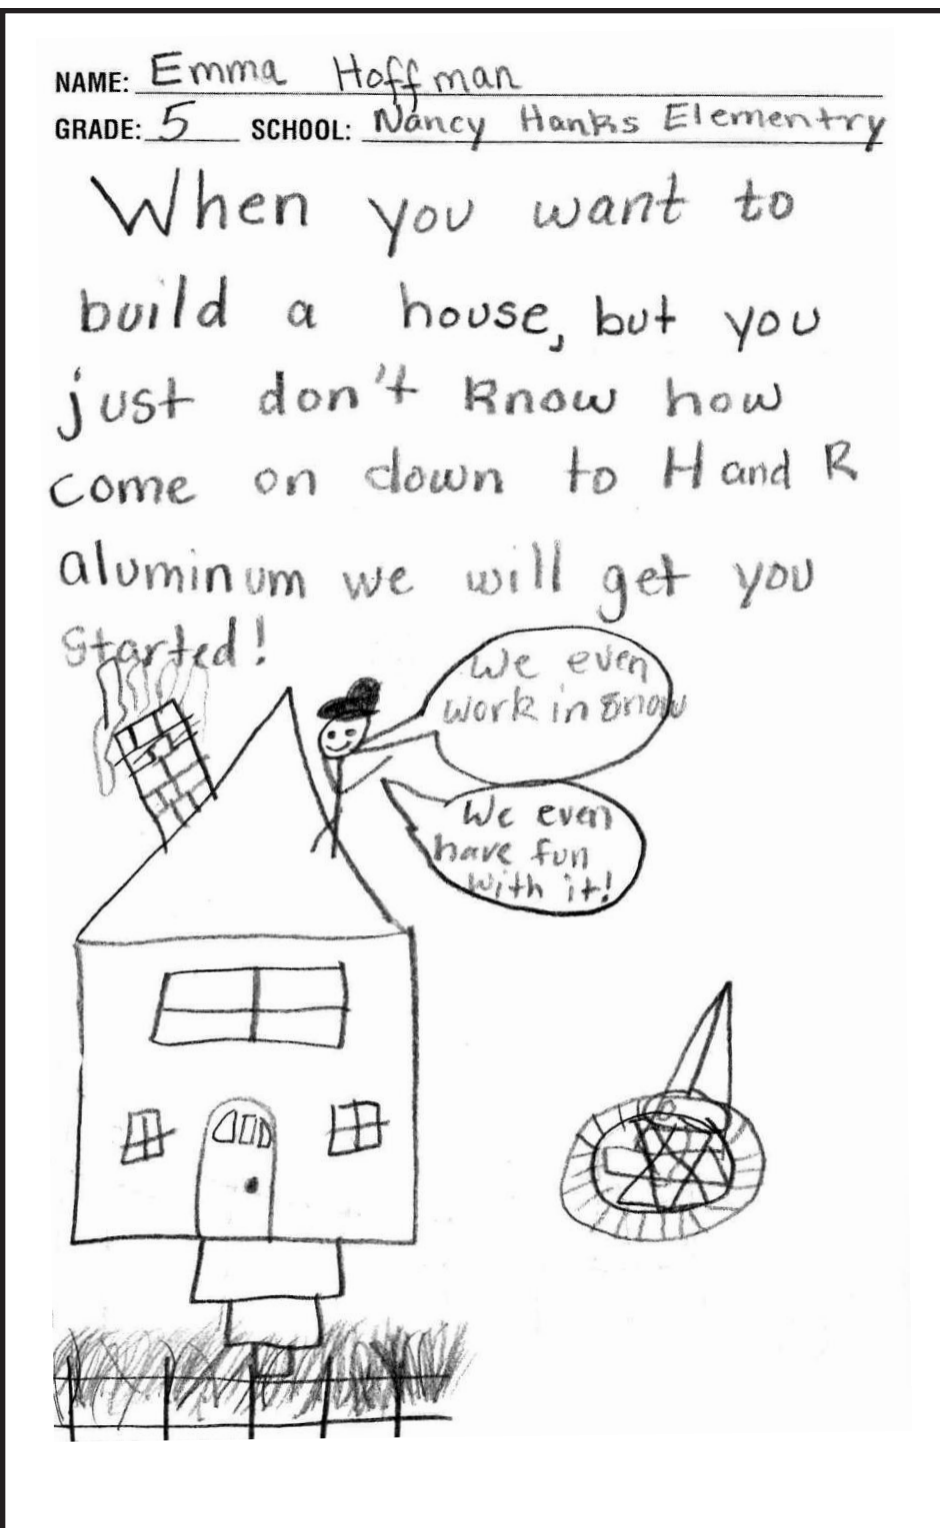 NAME: Emma Hoffman
GRADE: 5 SCHOOL: Nancy Hanks Elementry
When you want to
build a house, but you
just don't know how
come on down to H and R
aluminum we will get you
started!
We even
work in snow
We even
have fun
with it!